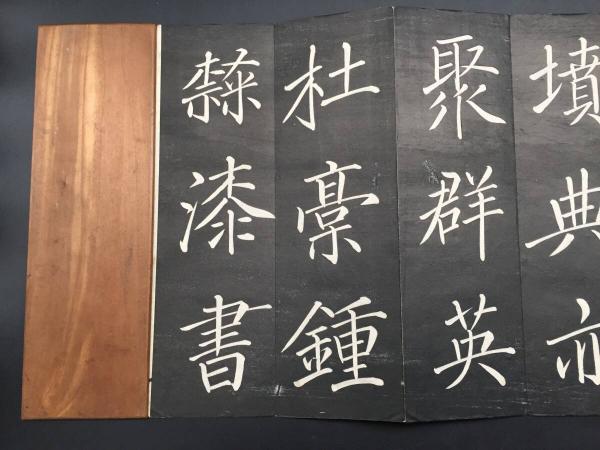 墳典亦
聚群英
杜稾鍾
隸漆書